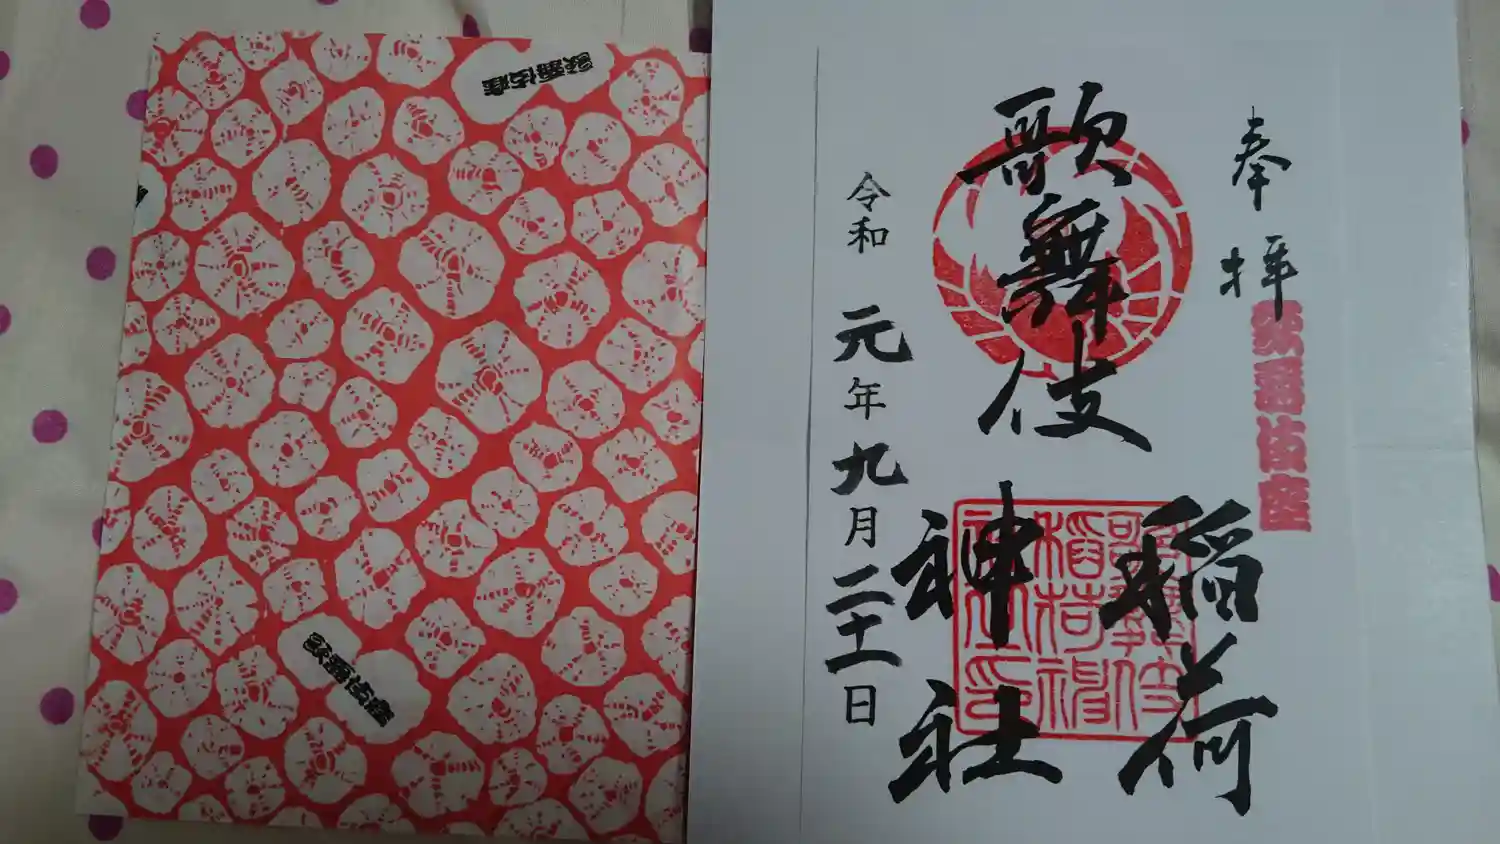 歌舞伎座
歌舞伎座
奉拝
歌舞伎座
歌舞伎
稲荷
神社
令和元年九月二十一日
歌舞伎
稲荷神
社之印